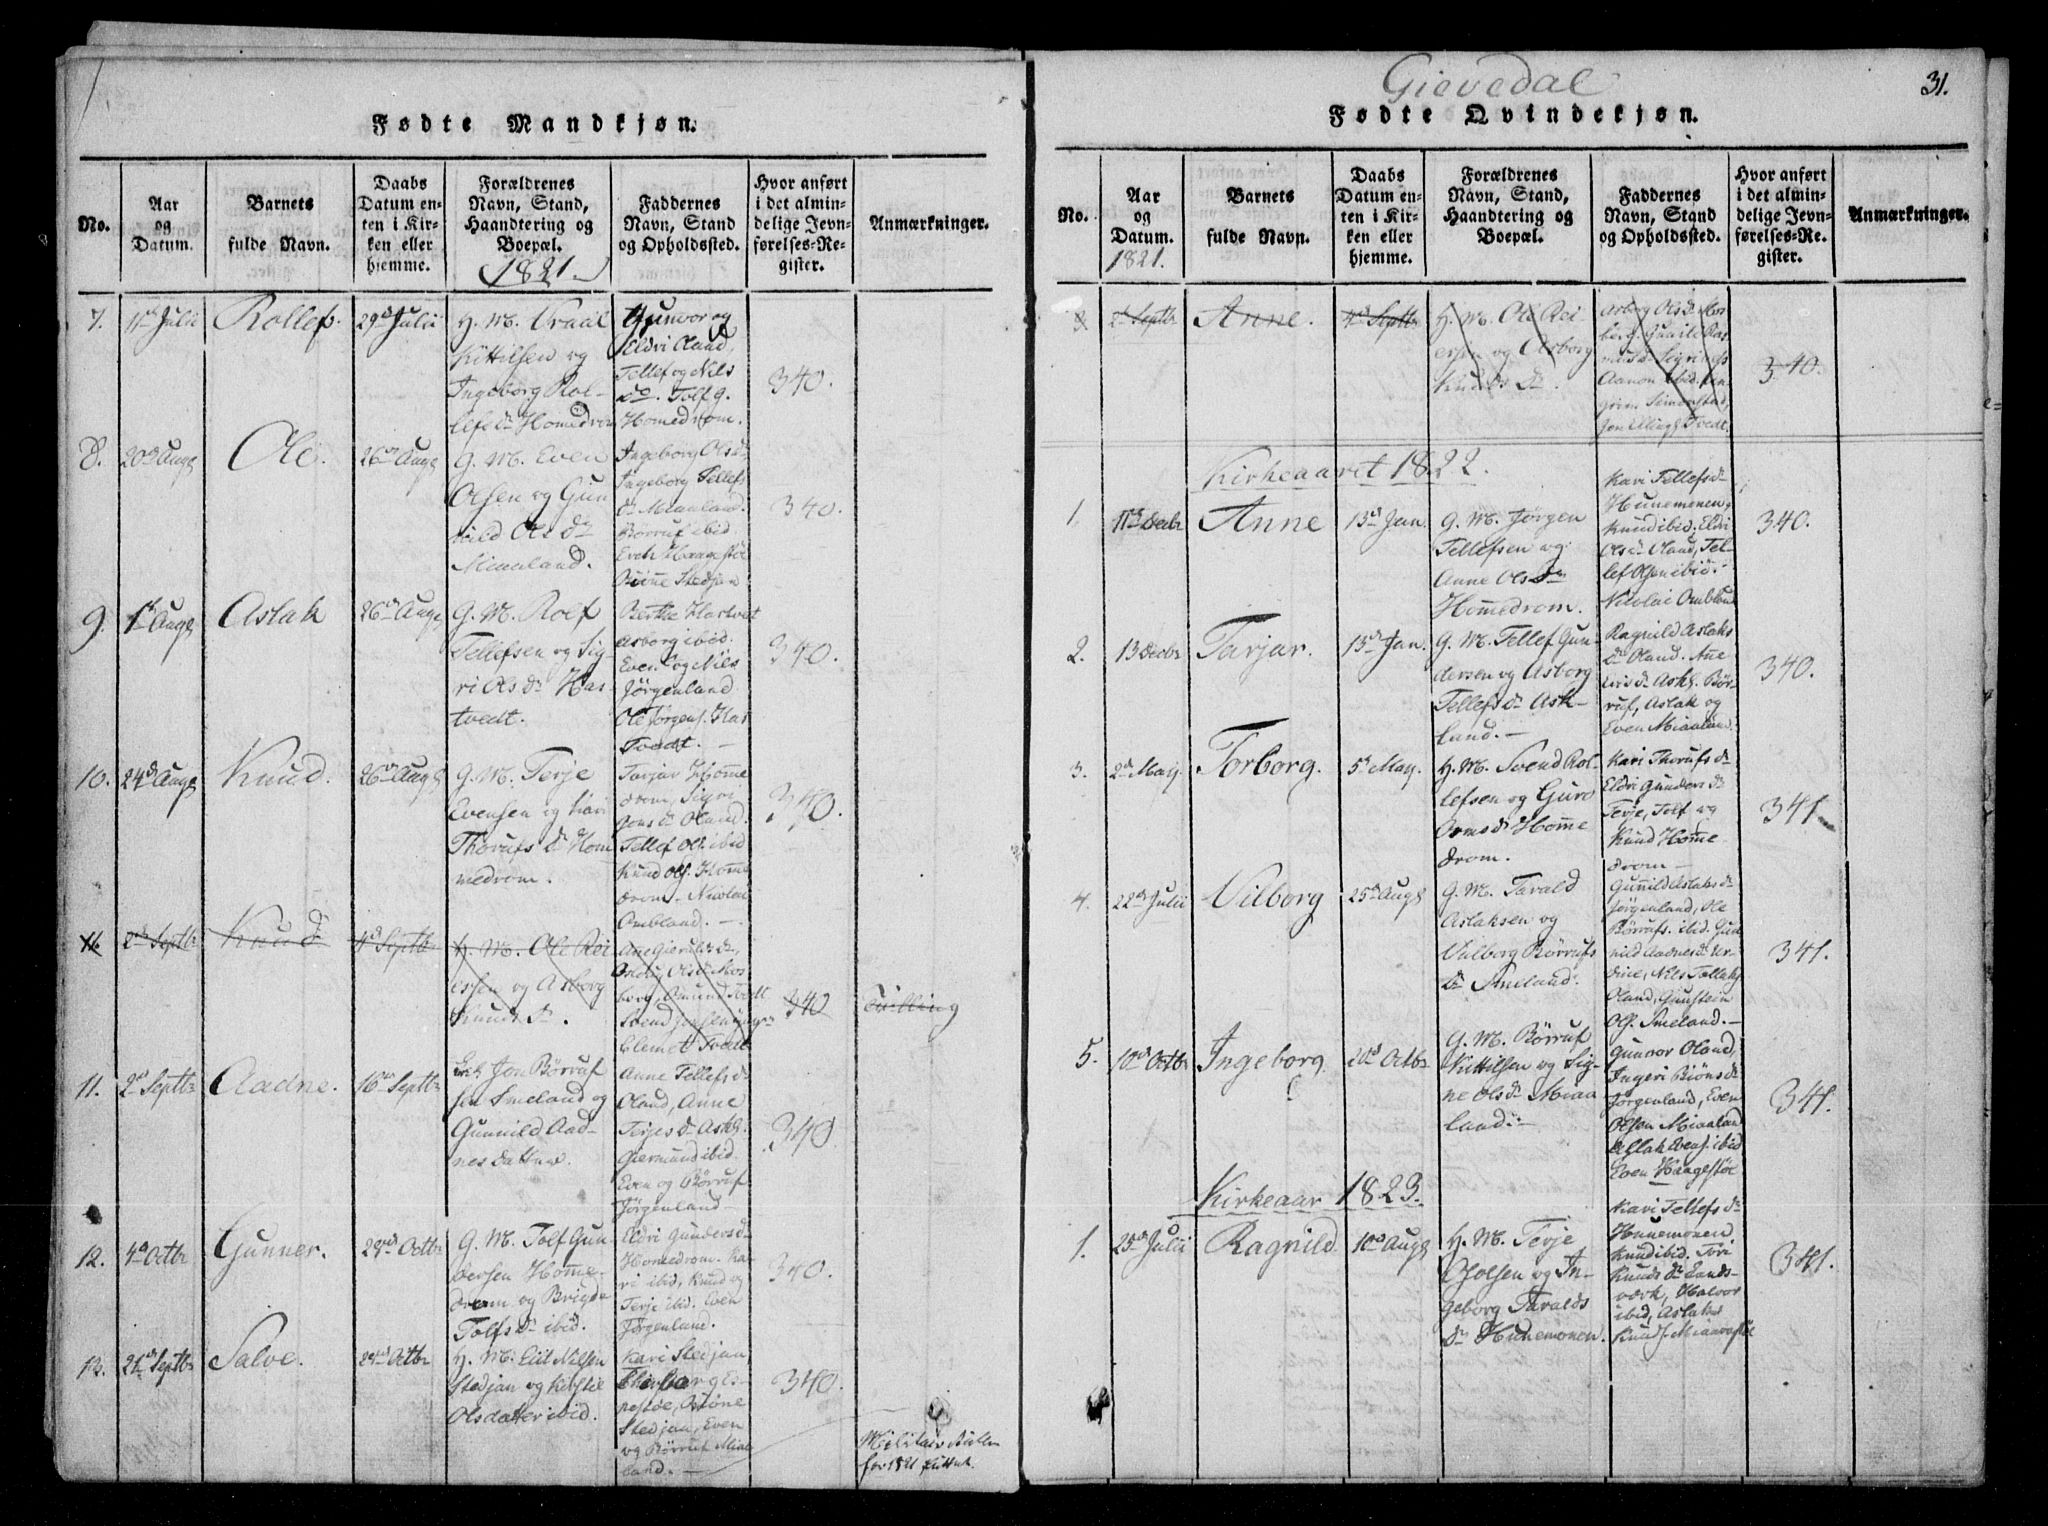 Fødte Mandkjøn.
No.
Aar
og
Datum.
Barnets
fulde Navn.
Daabs
Datum en-
ten i Kir-
ken eller
hjemme.
Forældrenes
Navn, Stand,
Haandtering og
Boepæl.
1821.
Faddernes
Navn, Stand
og Opholdssted.
Hvor anført
i det almin-
delige Jevn-
førelses-Re-
gister.
Anmærkninger.
7.
11te Julii
Rollef.
29de Julii
H. M. Vraal
Kittilsen og
Ingeborg Rol-
lefs Dr Homedrom
Gunvor og
Eldri Oland,
Tellef og Nils
do. Tolf G.
Homedrom.
340.
8.
20de Augs
Ole.
26de Augs
G. M. Even
Olsen og Gun
nild Ols Dr
Miaaland.
Ingeborg Ols Dr
Ingeborg Tellefs
Dr Miaaland.
Børruf ibid
Even Haagestøl
Biöne Stedjan
340.
9.
1ste Augs
Aslak
26de Augs
G. M. Rolf
Tellefsen og Sig-
ri Ols Dr Has-
tvedt.
Berthe Hastvet
Asborg ibid.
Even og Nils
Jörgenland
Ole Jörgens. Has
Tvedt.
340.
10.
24de Augs
Knud.
26de Augs
G. M. Terje
Evensen og Kari
Thorufs Dr Hom
medrom.
Tarjar Homme
drom, Sigri
Jens Dr Oland.
Tellef Ols. ibid
Knud Ols. Homme
drom. Nicolai
Ombland.
340.
11.
2de Septbr
Knud
4de Septbr
H. M. Ole Rei
ersen og Asborg
Knuds Dr.
340
Tvilling
11.
2de Septbr
Aadne.
16de Septbr
Enk. Jon Börruf
sen Smeland og
Gunnild Aad-
nes datter.
Anne Tellefs Dr
Oland, Anne
Terjes Dr Askl.
Giermund ibid.
Even og Börruf
Jörgenland
340
12.
4de Octbr
Gunner.
29de Octbr
G. M. Tolf Gun
dersen Homme-
drom og Brigde
Tolfs Dr ibid.
Eldri Gunders Dr
Homedrom. Ka-
ri ibid, Knud og
Terje ibid. Even
Jörgenland.
340.
13.
21de Septbr
Salve.
29de Octbr
H. M. Elit Nilsen
Stedjan og Kirstie
Olsdatter ibid.
Kari Stedjan,
Biöne
Stedjan, Even
og Börruf Miaa
land.
340.
Militair Rullen
for 1821 sluttet.
Gievedal
31.
Fødte Qvindekjøn.
No.
Aar
og
Datum.
1821.
Barnets
fulde Navn.
Daabs
Datum en-
ten i Kir-
ken eller
hjemme.
Forældrenes
Navn, Stand,
Haandtering og
Boepæl.
Faddernes
Navn, Stand
og Opholdssted.
Hvor anført
i det almin-
delige Jevn-
førelses-Re-
gister.
Anmærkninger.
2de Septbr
Anne.
4de Septbr
H. M. Ole Rei
ersen og Asborg
Knuds Dr.
340.
Kirkeaaret 1822.
1.
11te Decbr
Anne
13de Jan.
G. M. Jörgen
Tellefsen og
Anne Ols Dr
Hommedrom.
Kari Tellefs Dr
Hunemonen,
Knud ibid. Eldri
Ols Dr Oland, Tel-
lef Olsen ibid.
Nicolai Ombland
340.
2.
13 Decbr
Tarjar.
13de Jan.
G. M. Tellef Gun
dersen og Asborg
Tellefs Dr Ask-
land.
Ragnild Aslaks
Dr Oland. Anne
Dr Askl. Bör-
ruf, Aslak og
Even Miaaland.
340.
3.
2de May
Torborg.
5te May.
H. M. Svend Rol-
lefsen og Guro
Orms Dr Homme
drom.
Kari Thorufs Dr
Eldri Gunders Dr
Terje, Tolf og
Knud Homme
drom
341
4.
22de Julii
Vilborg
25de Augs
G. M. Tarald
Aslaksen og
Valborg Börrufs
Dr Smeland.
Gunnild Aslaks Dr
Jörgenland, Ole
Börrufs. ibid. Gun
nild Aadnes Dr Ur-
dine, Nils Tellefs.
Oland, Gunstein
Ols. Smeland.
341.
5.
10de Octbr
Ingeborg
20de Octbr
G. M. Börruf
Kittilsen og Sig-
ne Ols Dr Miaa
land.
Gunvor Oland,
Ingeri Biöns Dr
Jörgenland, Even
Olsen Miaaland
Aslak Evens. ibid
Even Haagestöl
341.
Kirkeaar 1823.
1.
25de Julii
Ragnild
10de Augs
H. M. Terje
Olsen og In-
geborg Taralds
Dr Hunemonen.
Kari Tellefs Dr
Hunnemonen
Knud ibid. Tori
Knuds Dr Eands-
værk, Halvor
ibid, Aslak
Knuds. Miaavastöl
341.